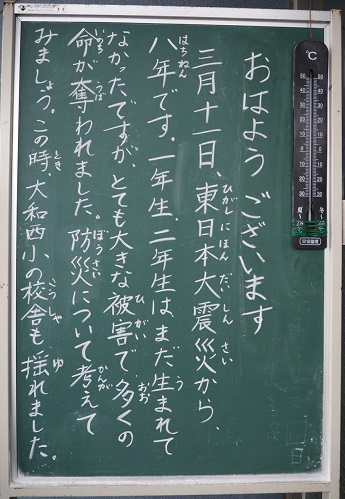 おはよう ございます
ひがしにほんだいしんさい
三月十一日、東日本大震災から、
はちねん う
八年です。一年生、二年生は、まだ生まれて
ひがい おお
なかったですが、とても大きな被害で多くの
いのち うば ぼうさい かんが
命が奪われました。防災について考えて
とき こうしゃ ゆ
みましょう。この時、大和西小の校舎も揺れました。
日
℃